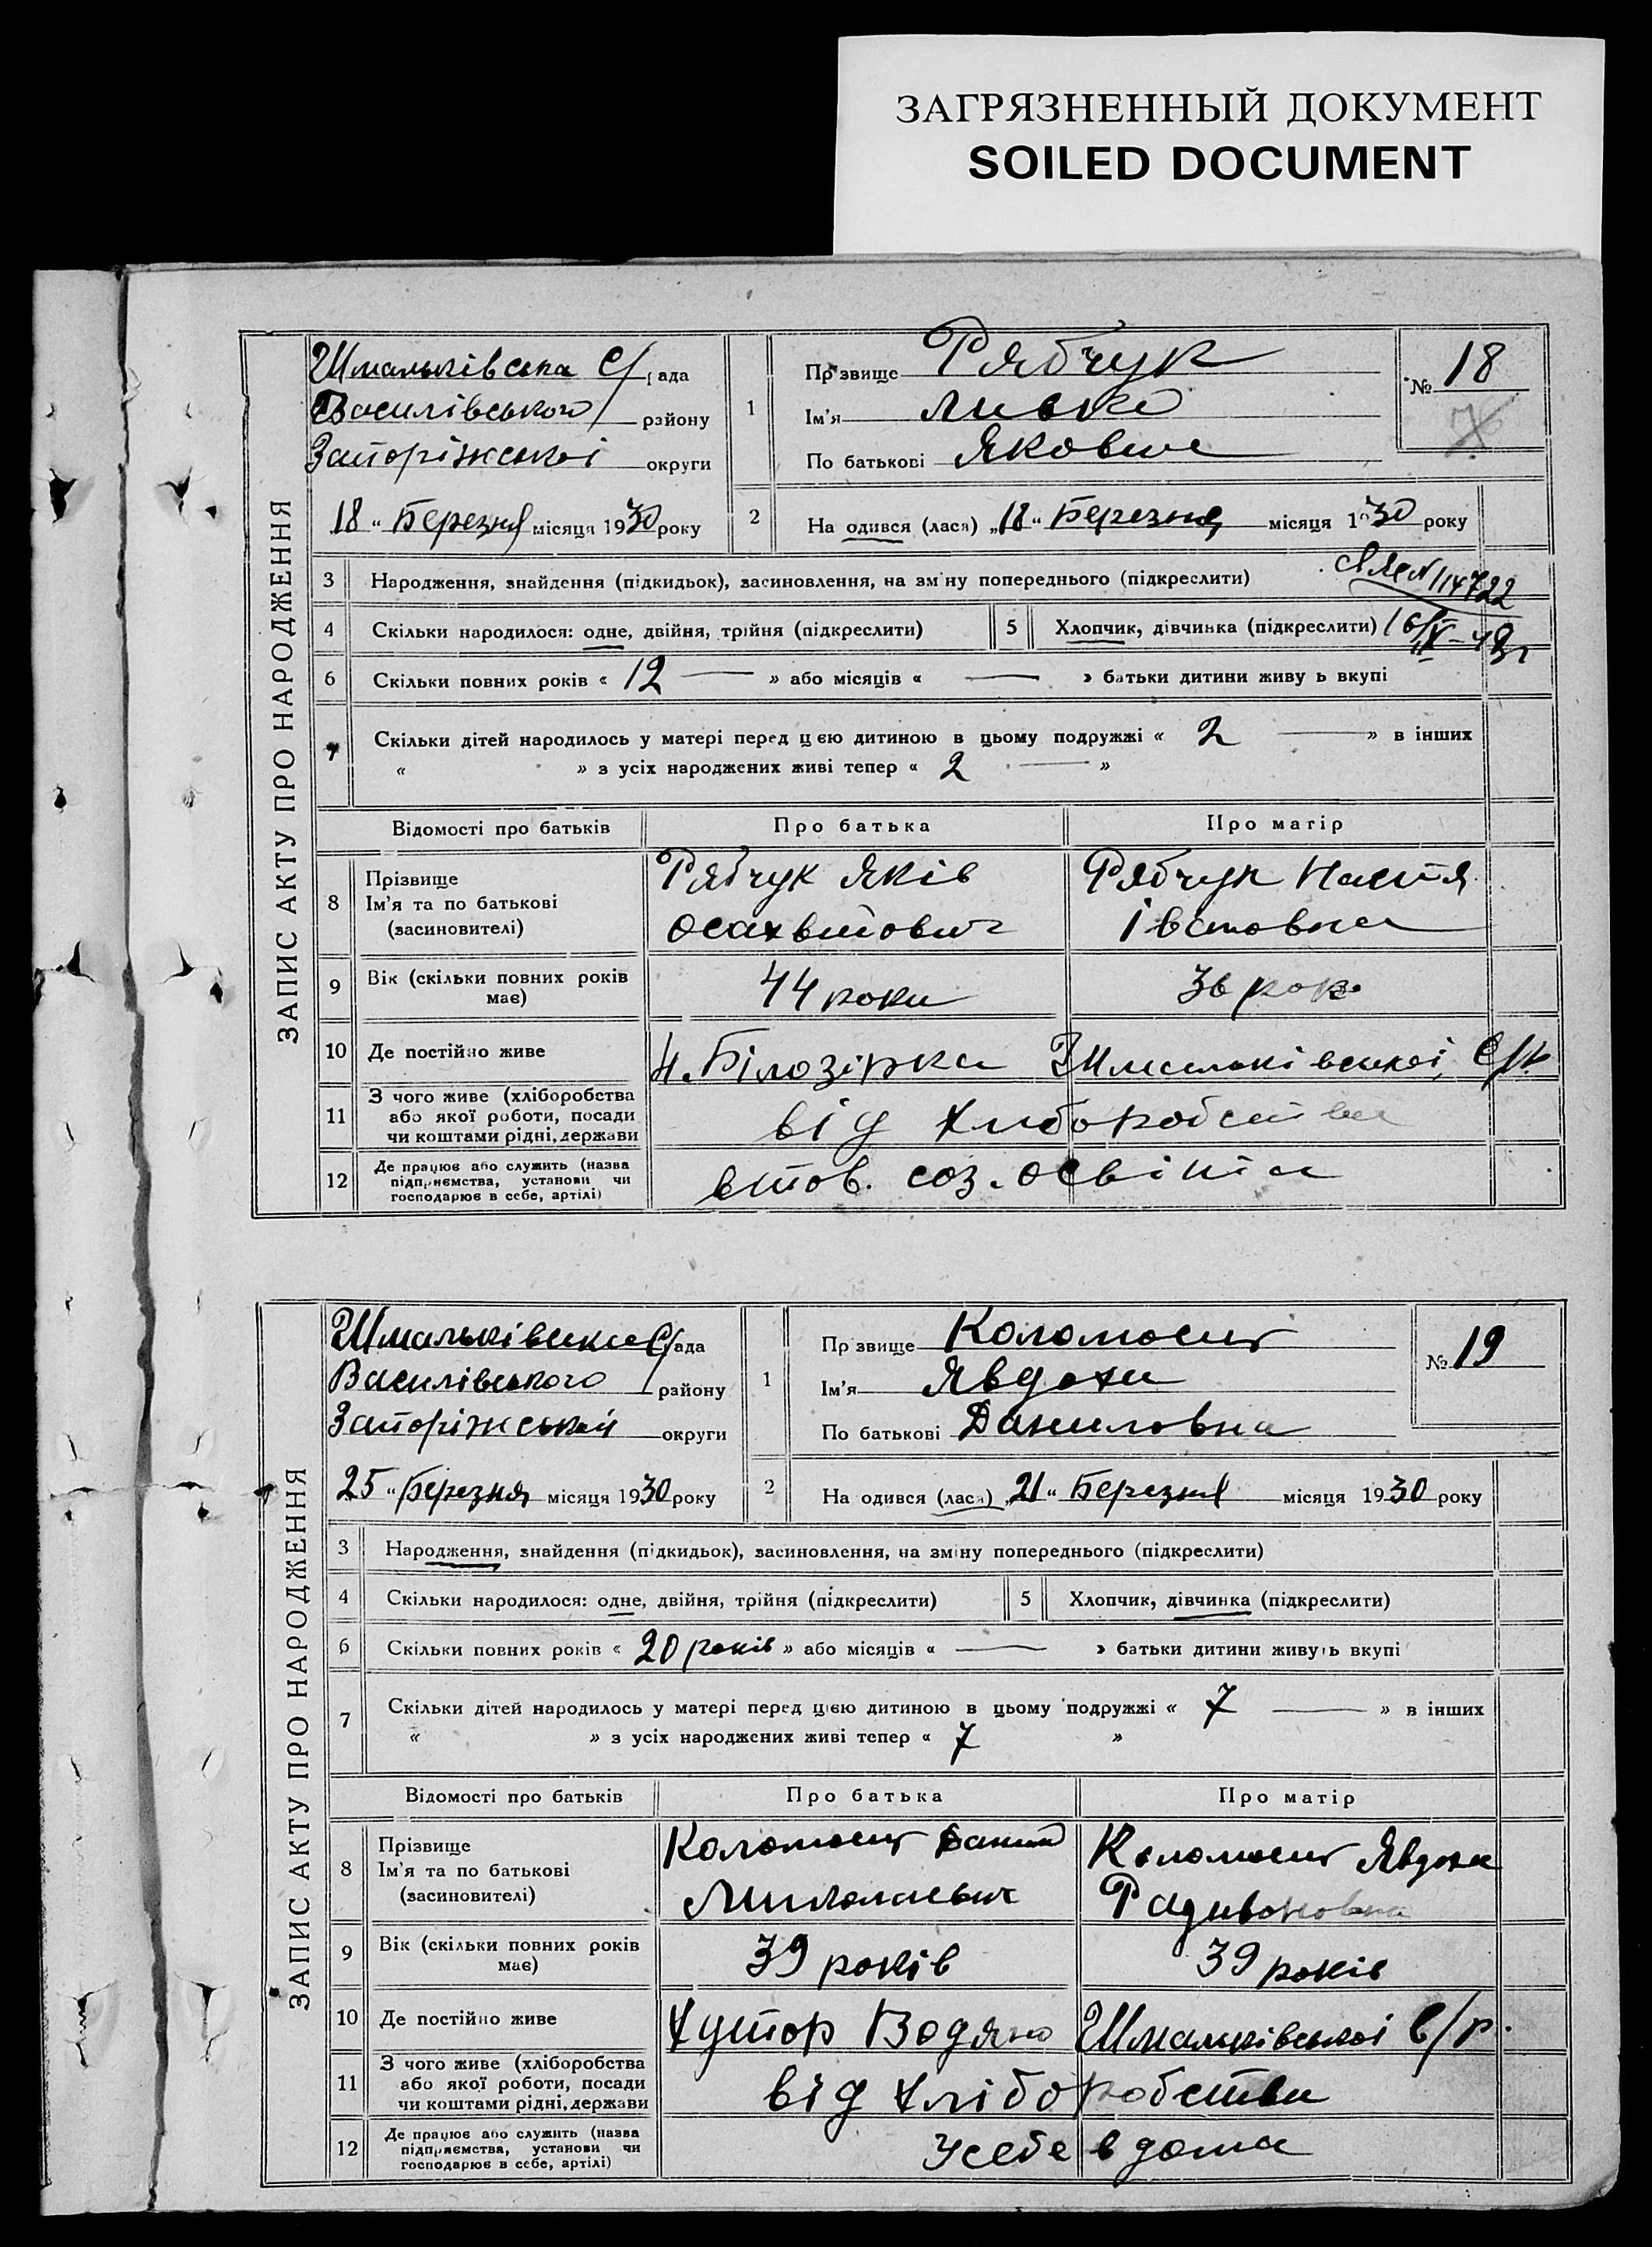 ЗАГРЯЗНЕННЫЙ ДОКУМЕНТ
SOILED DOCUMENT
ЗАПИС АКТУ ПРО НАРОДЖЕННЯ
Шмальківська С/рада
Василівського району
Запоріжської округи
18 " Березня місяця 1930 року
1
Прізвище Рябчук
Ім'я Лывко
По батькові Якович
№ 18
2
На одився (лася) „18" Березня місяця 1930 року
3 Народження, знайдення (підкидьок), засиновлення, на зміну попереднього (підкреслити)
114722
4 Скільки народилося: одне, двійня, трійня (підкреслити)
5 Хлопчик, дівчинка (підкреслити)
16/IX-48г
6 Скільки повних років « 12 — » або місяців « — » батьки дитини живу ь вкупі
7 Скільки дітей народилось у матері перед цією дитиною в цьому подружжі « 2 — » в інших
« » з усіх народжених живі тепер « 2 — »
Відомості про батьків Про батька Про матір
8 Прізвище
Ім'я та по батькові
(засиновителі)
Рябчук Яків
Осахвийович
Рябчук Настя
Івановна
9 Вік (скільки повних років має) 44 роки 36 рок.
10 Де постійно живе Н. Білозірка Шмальківської С/р.
11 З чого живе (хліборобства
або якої роботи, посади
чи коштами рідні, держави
від хліборобства
12 Де працює або служить (назва
підприємства, установи чи
господарює в себе, артілі)
втов. соз. освіта
ЗАПИС АКТУ ПРО НАРОДЖЕННЯ
Шмальківська С/рада
Василівського району
Запоріжської округи
25 " Березня місяця 1930 року
1
Пр звище Коломоєць
Ім'я Явдоха
По батькові Даниловна
№ 19
2
На одився (лася) „21" Березня місяця 1930 року
3 Народження, знайдення (підкидьок), засиновлення, на зміну попереднього (підкреслити)
4 Скільки народилося: одне, двійня, трійня (підкреслити)
5 Хлопчик, дівчинка (підкреслити)
6 Скільки повних років « 20 років » або місяців « — » батьки дитини живуть вкупі
7 Скільки дітей народилось у матері перед цією дитиною в цьому подружжі « 7 — » в інших
« » з усіх народжених живі тепер « 7 »
Відомості про батьків Про батька Про матір
8 Прізвище
Ім'я та по батькові
(засиновителі)
Коломоєць Данило
Миколаєвич
Коломоєць Явдоха
Радивоновна
9 Вік (скільки повних років має) 39 років 39 років
10 Де постійно живе Хутор Водяно Шмальківської с/р.
11 З чого живе (хліборобства
або якої роботи, посади
чи коштами рідні, держави
від хліборобства
12 Де працює або служить (назва
підприємства, установи чи
господарює в себе, артілі)
У себе в дома